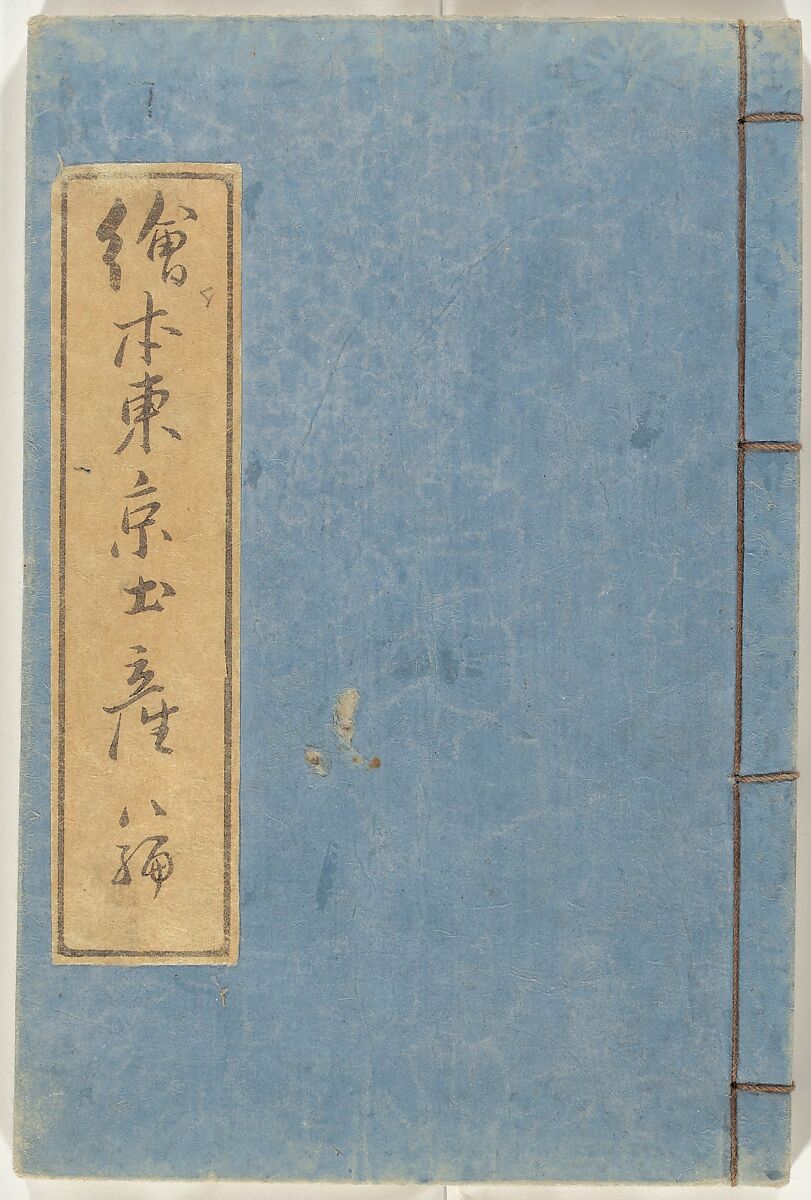 繪本東京土產 八編